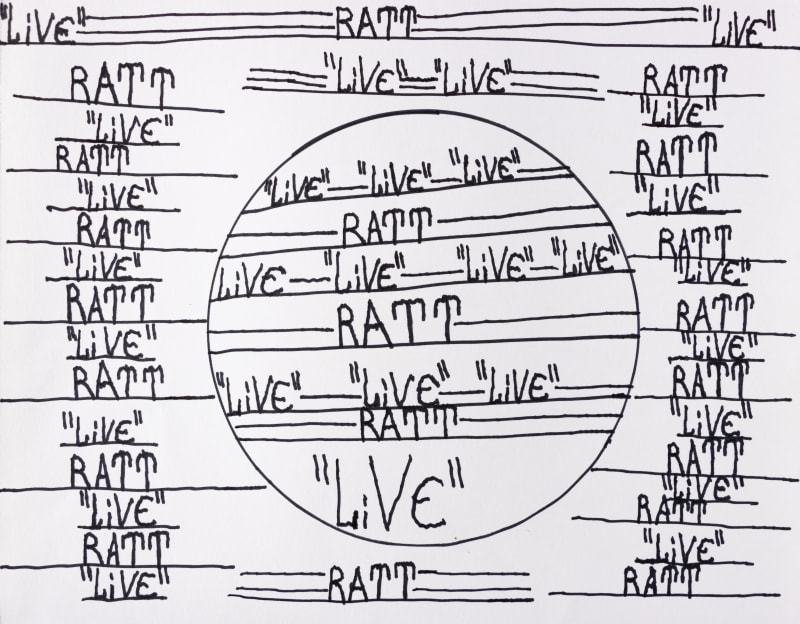 "LiVE" RATT "LiVE"
RATT
"LiVE"
RATT
"LiVE"
RATT
"LiVE"
RATT
"LiVE"
RATT
"LiVE"
RATT
"LiVE"
RATT
"LiVE"
"LiVE" "LiVE"
"LiVE" "LiVE" "LiVE"
RATT
LiVE "LiVE" "LiVE" "LiVE"
RATT
"LiVE" "LiVE" "LiVE"
RATT
"LiVE"
RATT
RATT
"LiVE"
RATT
"LiVE"
RATT
"LiVE"
RATT
"LiVE"
RATT
"LiVE"
RATT
"LiVE"
RATT
"LiVE"
RATT